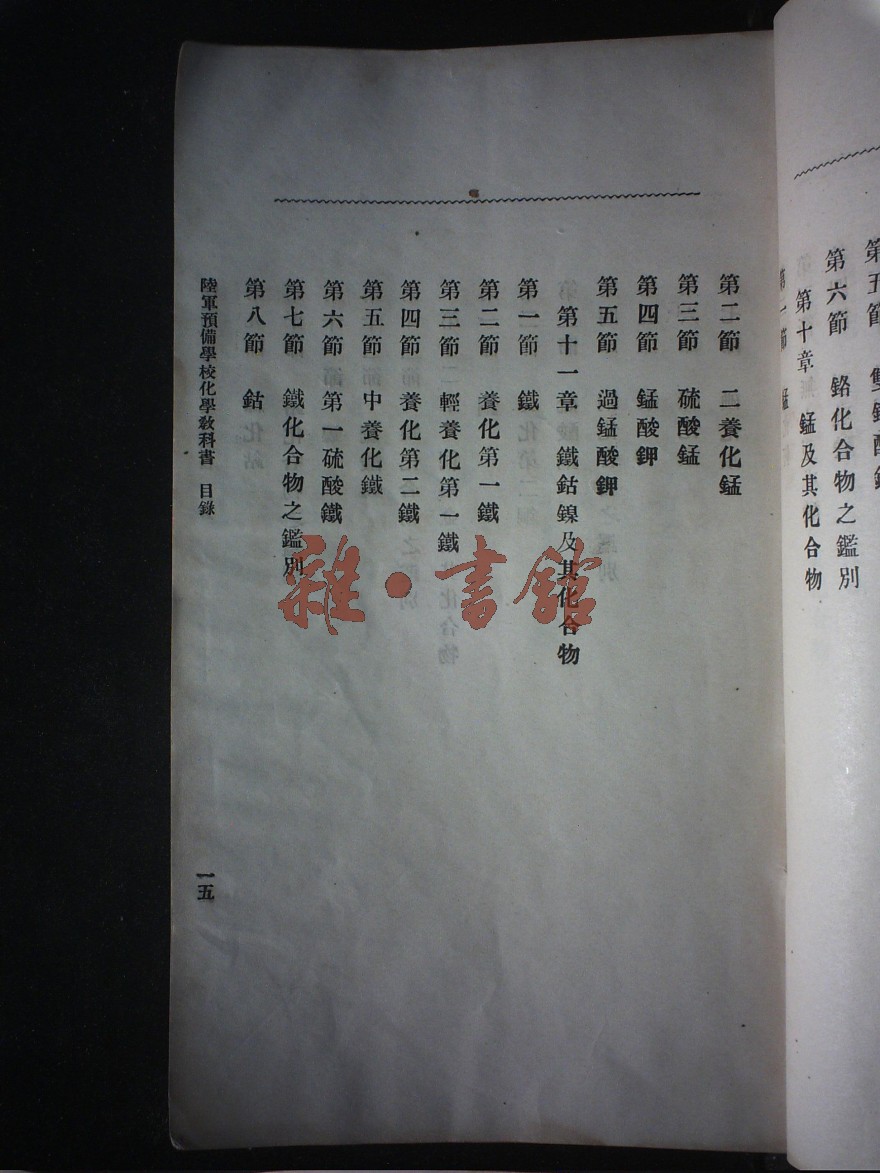 第五節　雙鉻酸
第六節　鉻化合物之鑑別
第十章　錳及其化合物
第一節　錳
第二節　二養化錳
第三節　硫酸錳
第四節　錳酸鉀
第五節　過錳酸鉀
第十一章　鐵鈷鎳及其化合物
第一節　鐵
第二節　養化第一鐵
第三節　輕養化第一鐵
第四節　養化第二鐵
第五節　中養化鐵
第六節　第一硫酸鐵
第七節　鐵化合物之鑑別
第八節　鈷
陸軍預備學校化學教科書　目錄
一五
雜·書館